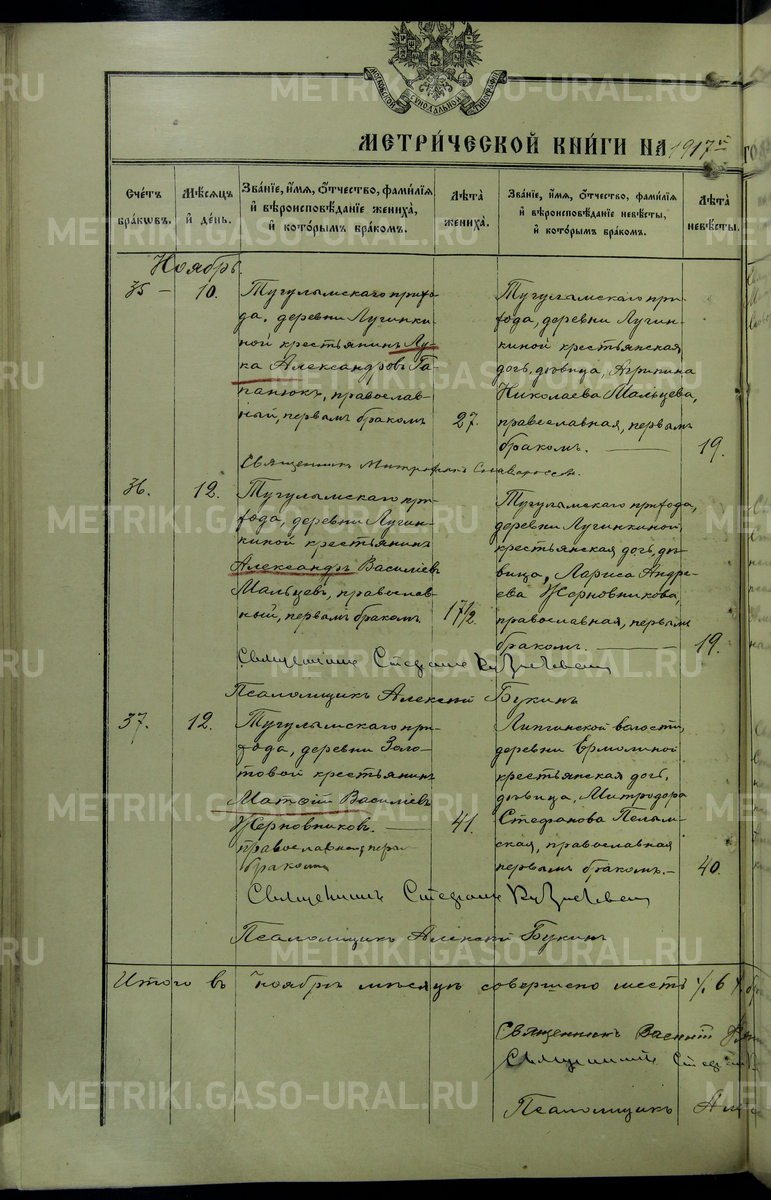 МОСКОВСКОЙ СѴНОДАЛЬНОЙ ТИПОГРАФІИ
МЕТРИ́ЧЕСКОЙ КНИ́ГИ НА 1917 й
Сче́тъ бра́кѡвъ.
Мѣ́сяцъ и҆ де́нь.
Зва́нїе, и҆́мя, ѻ҆́тчество, фамилїя
и҆ вѣроисповѣ́данїе жениха̀,
и҆ кото́рымъ бра́комъ.
Лѣ́та жениха̀.
Зва́нїе, и҆́мя, ѻ҆́тчество, фамилїя
и҆ вѣроисповѣ́данїе невѣ́сты,
и҆ кото́рымъ бра́комъ.
Лѣ́та невѣ́сты.
Ноябрь.
35 — 10.
Тугулымскаго прихо-
да, деревни Лучинки-
ной крестьянинъ Лу-
ка Александровъ Га-
панюкъ, православ-
ный, первымъ бракомъ
27.
Тугулымскаго при-
хода, деревни Лучин-
киной крестьянская
дочь, дѣвица, Агрипина
Николаева Мальцева,
православная, первымъ
бракомъ. —
19.
Священникъ Митрофанъ
36. 12.
Тугулымскаго при-
хода, деревни Лучин-
киной крестьянинъ
Александръ Василіевъ
Мальцевъ, православ-
ный, первымъ бракомъ
17½.
Тугулымскаго прихода,
деревни Лучинкиной,
крестьянская дочь, дѣ-
вица, Лариса Андре-
ева Жерновникова,
православная, первымъ
бракомъ. —
19.
Священникъ Стефанъ
Псаломщикъ Алексѣй Букинъ
37. 12.
Тугулымскаго при-
хода, деревни Золо-
товой крестьянинъ
Матѳій Василіевъ
Жерновниковъ. —
православный, первымъ
бракомъ
41.
Липчинской волости,
деревни Ермолиной
крестьянская дочь,
дѣвица, Митродора
Стефанова Пелым-
ская, православная
первымъ бракомъ. —
40.
Священникъ Стефанъ
Псаломщикъ Алексѣй Букинъ
Итого въ ноябрѣ мѣсяцѣ совершено шесть /. 6 /.
Священникъ
Священникъ
Псаломщикъ
METRIKI.GASO-URAL.RU